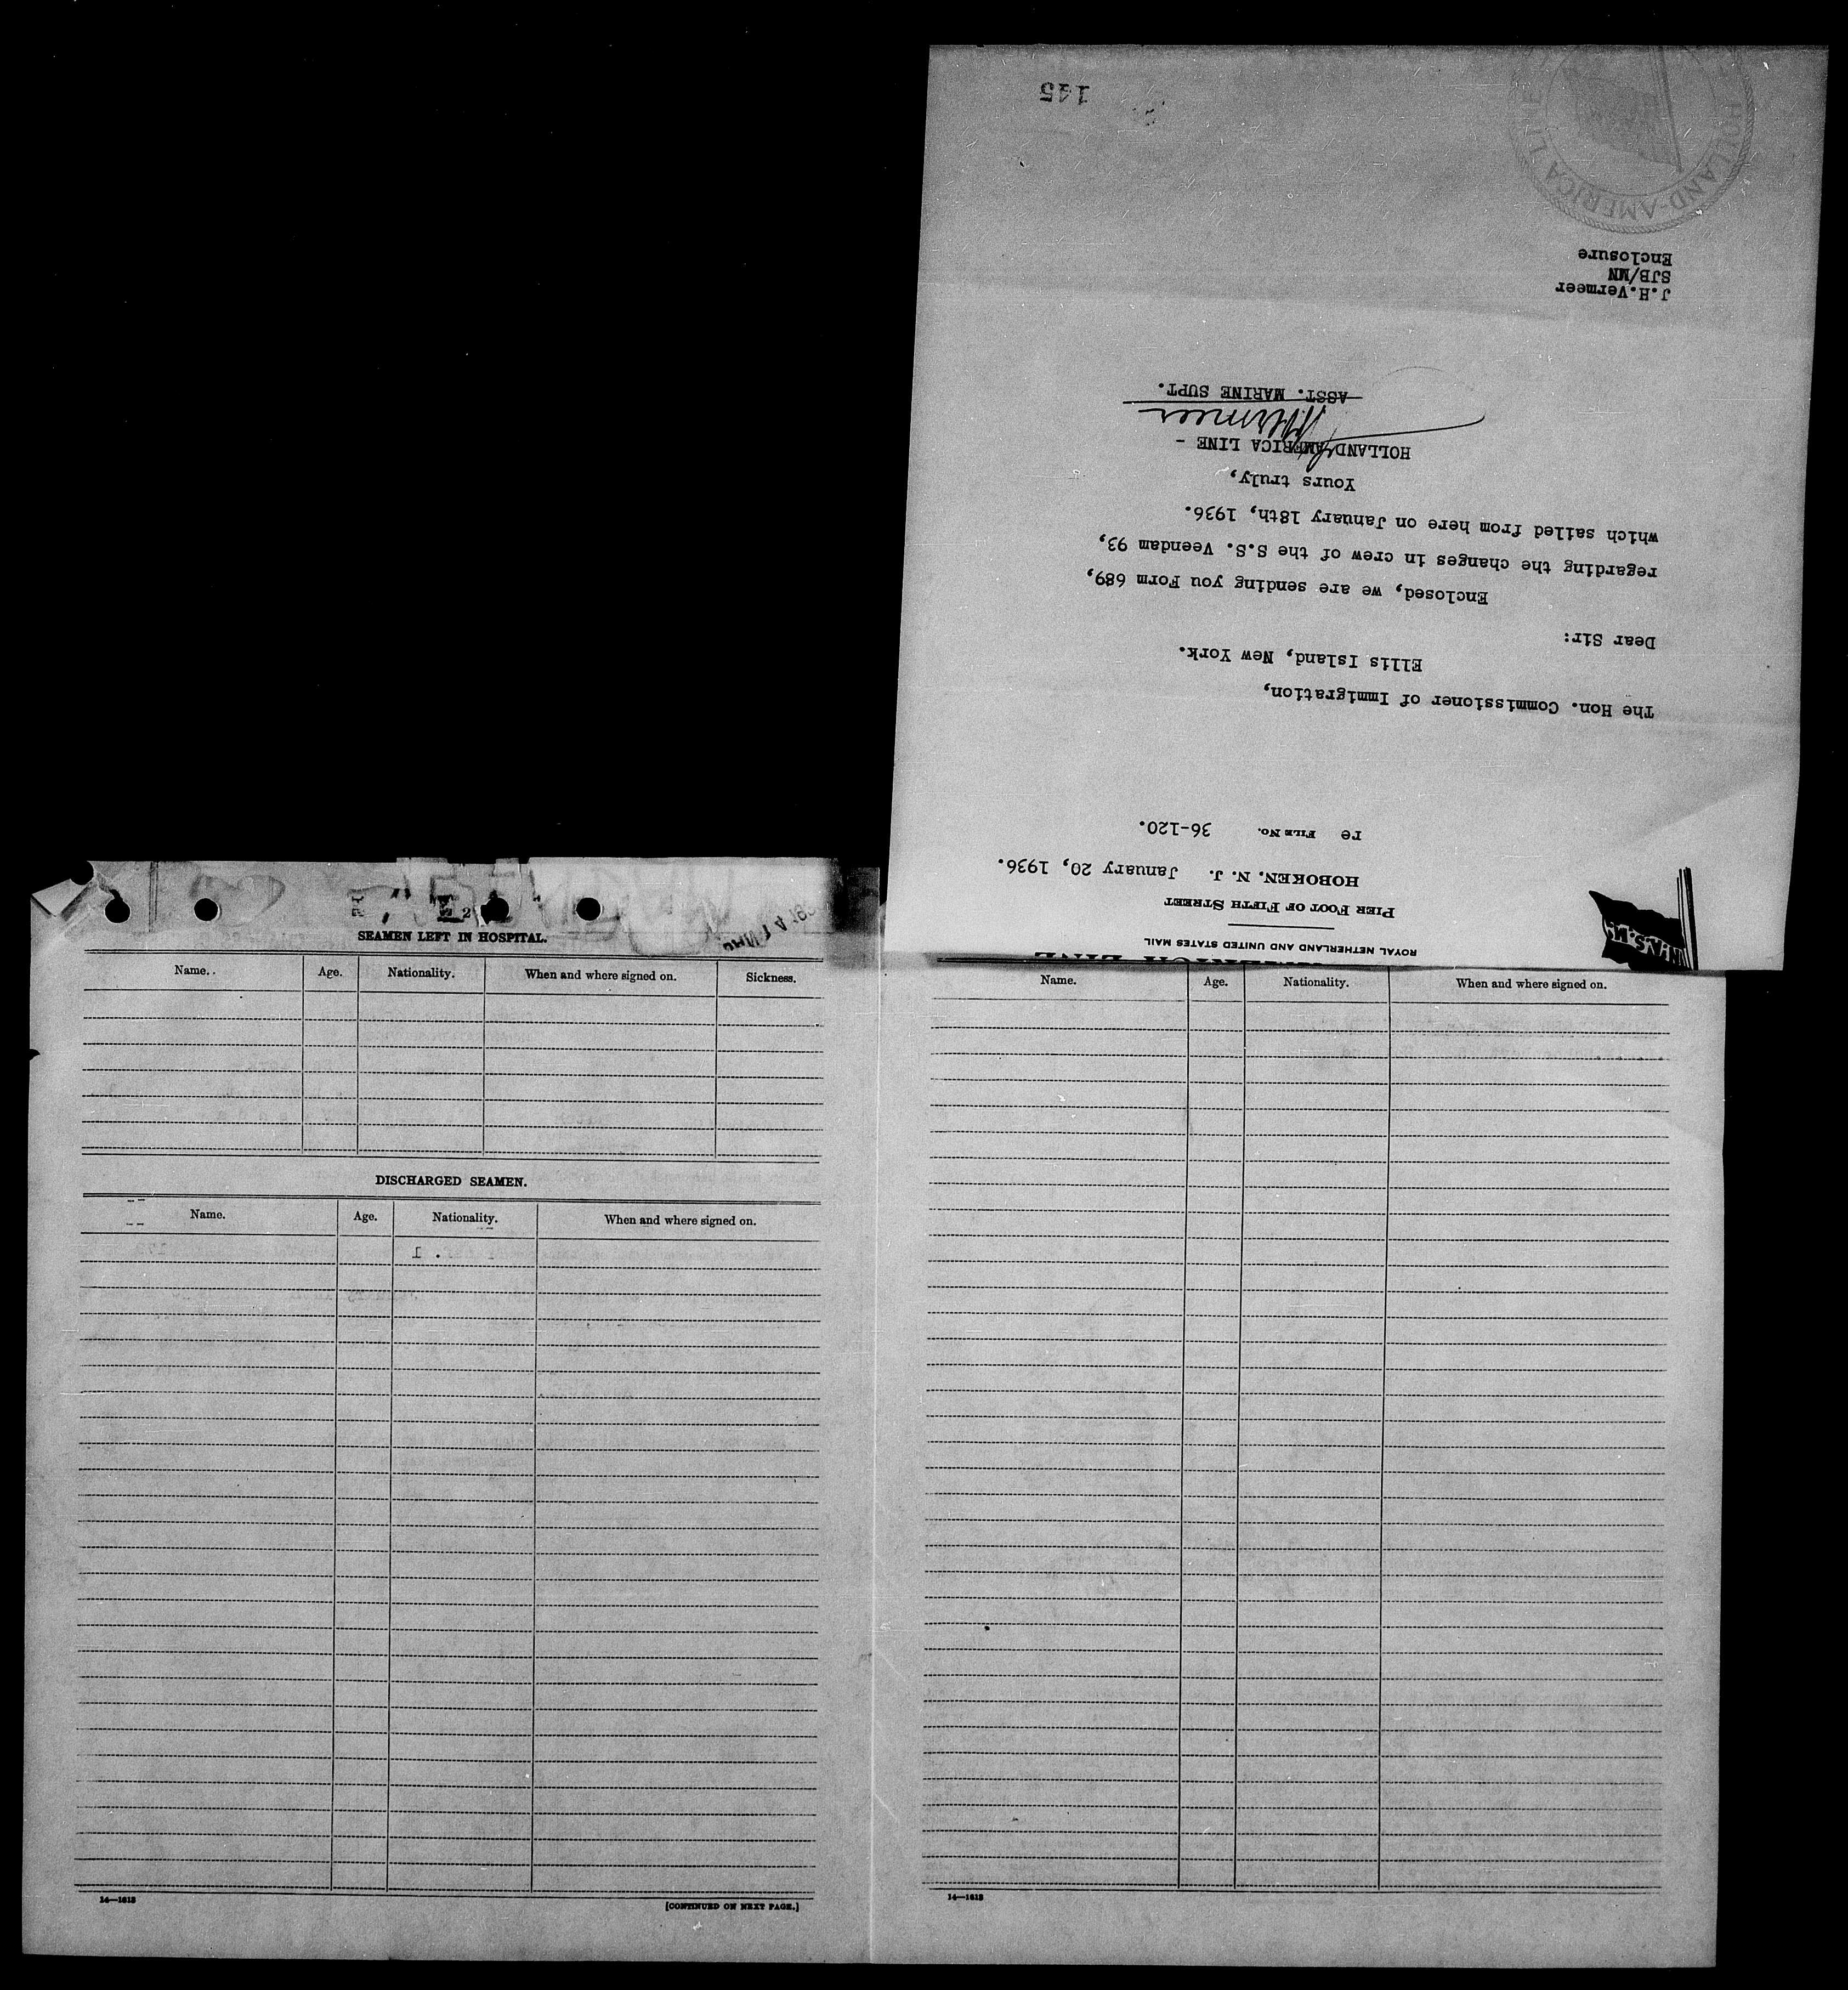 ROYAL NETHERLAND AND UNITED STATES MAIL
PIER FOOT OF FIFTH STREET
HOBOKEN, N. J. January 20, 1936.
re FILE No. 36-120.
The Hon. Commissioner of Immigration,
Ellis Island, New York.
Dear Sir:
Enclosed, we are sending you Form 689,
regarding the changes in crew of the S.S. Veendam 93,
which sailed from here on January 18th, 1936.
Yours truly,
HOLLAND AMERICA LINE -
JHVermeer
ASST. MARINE SUPT.
J.H.Vermeer
SJB/MN
Enclosure
HOLLAND-AMERICA LINE
145
2
SEAMEN LEFT IN HOSPITAL.
Name. Age. Nationality. When and where signed on. Sickness.
DISCHARGED SEAMEN.
Name. Age. Nationality. When and where signed on.
14—1613
[CONTINUED ON NEXT PAGE.]
Name. Age. Nationality. When and where signed on.
14—1613